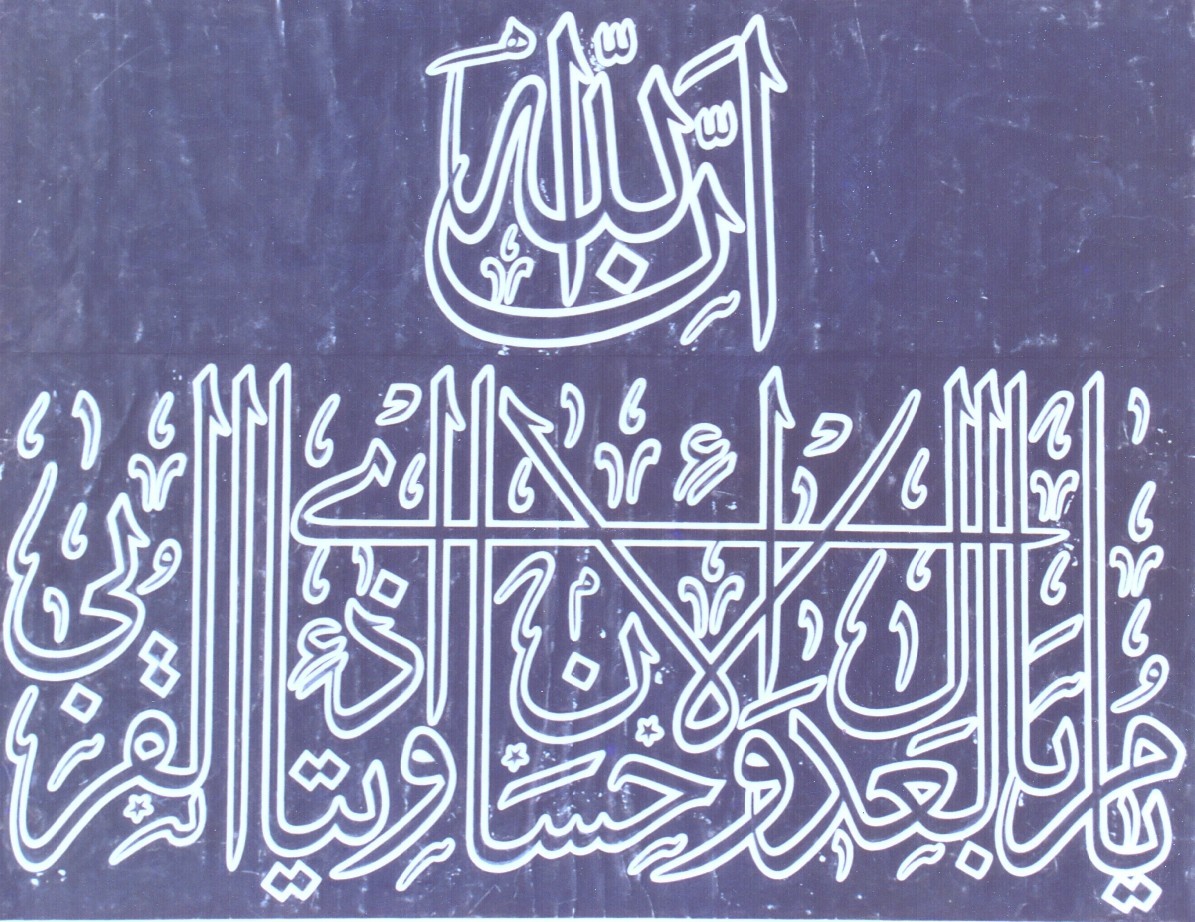 إِنَّ اللّٰهَ
يَأْمُرُ بِالْعَدْلِ وَالْإِحْسَانِ وَإِيتَاءِ ذِي الْقُرْبَىٰ